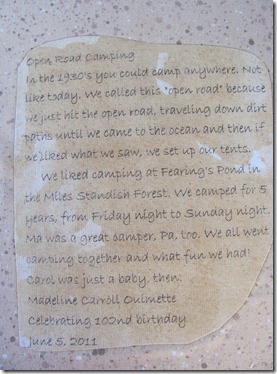 Open Road Camping
In the 1930's you could camp anywhere. Not
like today. We called this "open road" because
we just hit the open road, traveling down dirt
paths until we came to the ocean and then if
we liked what we saw, we set up our tents.
We liked camping at Fearing's Pond in
the Miles Standish Forest. We camped for 5
years, from Friday night to Sunday night.
Ma was a great camper, Pa, too. We all went
camping together and what fun we had!
Carol was just a baby, then.
Madeline Carroll Ouimette
Celebrating 102nd birthday
June 5, 2011